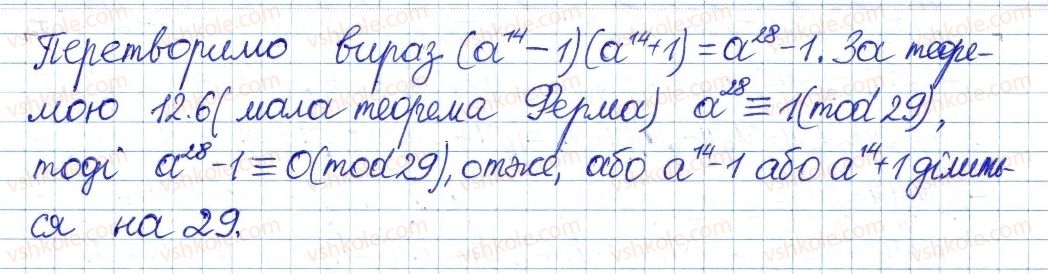 Перетворимо вираз (a¹⁴ – 1)(a¹⁴+1) = a²⁸ – 1. За теоре-
мою 12.6 (мала теорема Ферма) a²⁸ ≡ 1(mod 29),
тоді a²⁸ – 1 ≡ 0(mod 29), отже, або a¹⁴ – 1 або a¹⁴ + 1 ділить-
ся на 29.